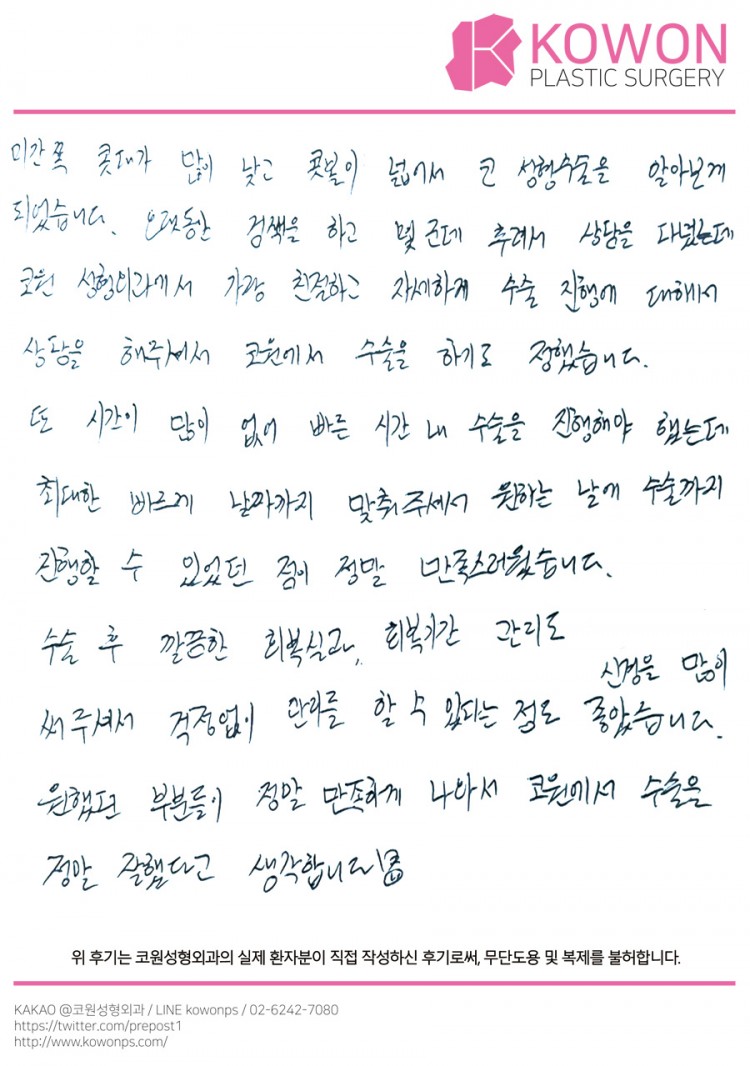 KOWON
PLASTIC SURGERY
미간쪽 콧대가 많이 낮고 콧볼이 넓어서 코 성형수술을 알아보게
되었습니다. 오랫동안 검색을 하고 몇 군데 추려서 상담을 다녔는데
코원 성형외과에서 가장 친절하고 자세하게 수술 진행에 대해서
상담을 해주셔서 코원에서 수술을 하기로 정했습니다.
또 시간이 많이 없어 빠른 시간 내 수술을 진행해야 했는데
최대한 빠르게 날짜까지 맞춰주셔서 원하는 날에 수술까지
진행할 수 있었던 점이 정말 만족스러웠습니다.
수술 후 깔끔한 회복실과, 회복기간 관리도
신경을 많이
써주셔서 걱정없이 관리를 할 수 있다는 점도 좋았습니다.
원했던 부분들이 정말 만족하게 나와서 코원에서 수술을
정말 잘했다고 생각합니다!
위 후기는 코원성형외과의 실제 환자분이 직접 작성하신 후기로써, 무단도용 및 복제를 불허합니다.
KAKAO @코원성형외과 / LINE kowonps / 02-6242-7080
https://twitter.com/prepost1
http://www.kowonps.com/